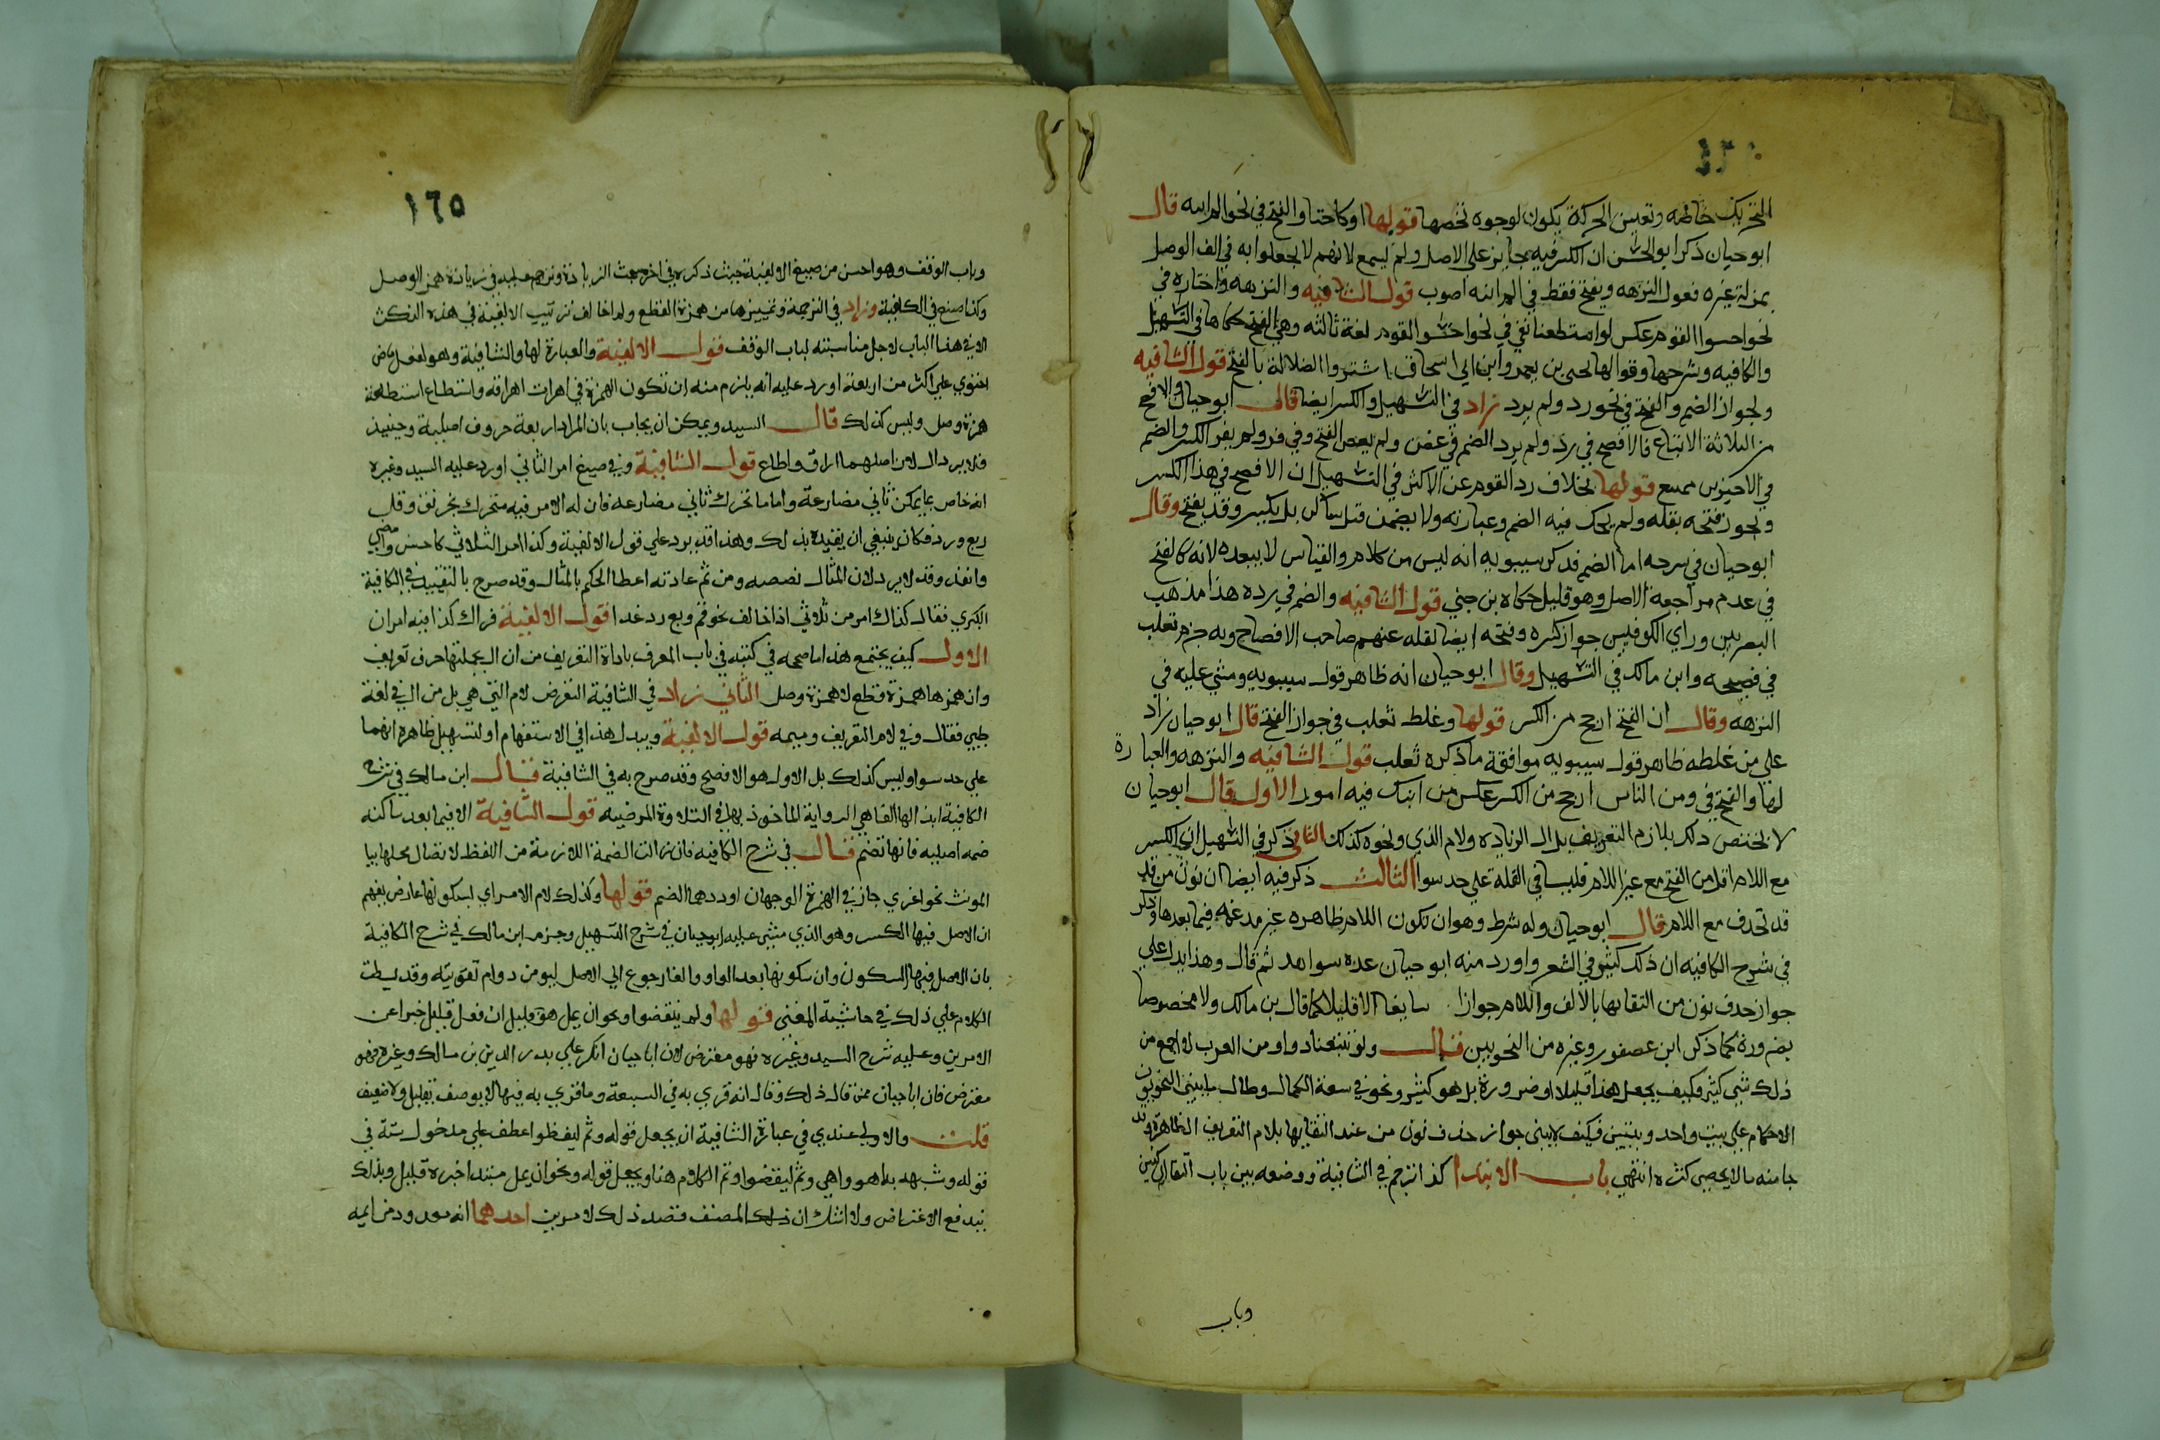 التحريك خاتمه وتعيين الحركة يكون لوجوه تخصها قولها او كاختا والفتح في نحو الم الله قال
ابو حيان ذكر ابو الحسن ان الكسر فيه جايز على الاصل ولم يسمع لانهم لا يجعلوا به في الف الوصل
بمنزلة غيره فعول النزهه ويفتح فقط في الم الله اصوب قول الشافيه والنزهه واختاره في
نحو اخسوا القوم عكس لو استطعنا نفى في نحو اخشوا القوم لغة ثالثه وهي الفتح حكاها في التسهيل
والكافيه وشرحها وقوالها لحيى بن يعمر وابن ابي اسحاق اشتروا الضلالة بالفتح قول الشافيه
ولجواز الضم والفتح في نحو رد ولم يرد زاد في التسهيل والكسر ايضا قال ابو حيان والافصح
من الثلاثة الاتباع فالافصح في رد ولم يرد الضم في عض ولم يعض الفتح وفي فر ولم يفر الكسر والضم
في الاخيرين ممتنع قولها بخلاف رد القوم عن الاكثر في التسهيل ان الافصح في هذا الكسر
ويجوز فتحه بقله ولم يحك فيه الضم وعبارته ولا يضم قبل ساكن بل يكسر وقد يفتح وقال
ابو حيان في شرحه اما الضم فذكر سيبويه انه ليس من كلامهم والقياس لا يبعده لانه كالفتح
في عدم مراجعة الاصل وهو قليل حكاه بن جني قول الشافيه والضم في يرده هذا مذهب
البصريين وراي الكوفيين جواز كسره وفتحه ايضا نقله عنهم صاحب الافصاح وبه جزم ثعلب
في فصيحه وابن مالك في التسهيل وقال ابو حيان انه ظاهر قول سيبويه ومشى عليه في
النزهه وقال ان الفتح ارجح من الكسر قولها وغلط ثعلب في جواز الفتح قال ابو حيان زاد
على من غلطه ظاهر قول سيبويه موافقة ما ذكره ثعلب قول الشافيه والنزهه والعبارة
لها والفتح في ومن الناس ارجح من الكسر عكس من ابنك فيه امور الاول قال ابو حيان
لا يختص ذلك بلازم التعريف بل ال الزياده ولام الذي ونحوه كذلك الثاني ذكر في التسهيل ان الكسر
مع اللام اقل من الفتح مع غير اللام فليسا في القلة على حد سوا الثالث ذكر فيه ايضا ان نون من قد
قد تحذف مع اللام قال ابو حيان وله شرط وهو ان تكون اللام ظاهره غير مدغمه فيما بعدها وذكر
في شرح الكافيه ان ذلك كثير في الشعر واورد منه ابو حيان عده شواهد ثم قال وهذا يدل على
جواز حذف نون من التقايها بالالف واللام جوازا سايغا الا قليلا كما قال بن مالك ولا مخصوصا
بضرورة كما ذكر ابن عصفور وغيره من النحويين قال ولو تتبعنا دواوين العرب لاجتمع من
ذلك شي كثير وكيف يجعل هذا قليلا او ضرورة بل هو كثير ونحو في سعة الكلام وطال ما يبني النحويون
الاحكام على بيت واحد وبيتين فكيف لا يبنى جواز حذف نون من عند التقايها بلام التعريف الظاهرة وقد
جا منه مالا يحصى كثرة انتهى باب الابتدا كذا ترجم في الشافية ووضعه بين باب التقا الساكنين
وباب
١٦٥
وباب الوقف وهو احسن من صنيع الالفية حيث ذكره في اخر بحث الزيادة وترجم عليه في زيادة همز الوصل
وكذا صنع في الكافية وزاد في الترجمة وتمييزها من همزة القطع ولم اخالف ترتيب الالفية في هذه النكت
الا في هذا الباب لاجل مناسبته لباب الوقف قول الالفية والعبارة لها والشافية وهو لفعل ماض
احتوى على اكثر من اربعة اورد عليه انه يلزم منه ان تكون الهمزة في اهراق اهراقه واسطاع اسطاعة
همزة وصل وليس كذلك قال السيد ويمكن ان يجاب بان المراد اربعة حروف اصلية وحينيذ
فلا يرد ال لان اصلهما اراق واطاع قول الشافية وفي صيغ امر الثاني اورد عليه السيد وغيره
انه خاص بما يمكن ثاني مضارعه واما ما تحرك ثاني مضارعه فان له الامر فيه متحرك بحر نفق وقل
ربع ورد فكان ينبغي ان يقيده بذلك وهذا قد يرد على قول الالفية وكذا امر الثلاثي كاخش وامض
وانفذ وقد لا يرد لان المثال نصصه ومن ثم عادته اعطا الحكم بالمثال وقد صرح بالتقييد في الكافية
الكبرى فقال كذاك امر من ثلاثي اذا خالف نحو قم وبع رد غدا قول الالفية فراك كذا فيه امران
الاول كيف يجتمع هذا ما صححه في كتبه في باب المعرف باداة التعريف من ان ال بجملتها حرف تعريف
وان همزها همزة قطع لا همزة وصل الثاني زاد في الشافية التعرض لام التي هي بل من ال في لغة
طيي فقال وفي لام التعريف وميمه قول الالفية ويبدل هذا في الاستفهام او لتسهيل ظاهره انهما
على حد سوا وليس كذلك بل الاول هو الافصح وقد صرح به في الشافية قال ابن مالك في شرح
الكافية ابدالها الفا هي الرواية الماخوذ بها في التلاوة المرضيه قول الشافية الا فيما بعد ساكنه
ضمه اصليه فانها تضم قال في شرح الكافيه فان زالت الضمة اللازمة من اللفظ لاتصال محلها بيا
المونث نحو اغزي جاز في الهمزة الوجهان اوردهما الضم قولها وكذلك لام الامر اي لسكونها عارض يفهم
ان الاصل فيها الكسر وهو الذي مشى عليه ابو حيان في شرح التسهيل وجزم ابن مالك في شرح الكافية
بان الاصل فيها السكون وان سكونها بعد الواو والفا رجوع الى الاصل ليومن دوام تقويته وقد بسطت
الكلام على ذلك في حاشية المغني قولها ولم ينقضوا ونحو ان يمل هو قليل ان فعل قليل خبرا عن
الامرين وعليه شرح السيد وغيره فهو معترض لان ابا حيان انكر على بدر الدين بن مالك وغيره فهو
معترض فان ابا حيان ممن قال ذلك وقال انه قري به في السبعة وما قري به فيها لا يوصف بقليل ولا ضعيف
قلت والاولى عندي في عبارة الشافية ان يجعل قوله وثم ليقظوا عطف على مدخول شبه في
قوله وشبهه به اهو واهي وثم ليقضوا وتم الكلام هنا ويجعل قوله ونحو ان يمل مبتدا خبره قليل وبذلك
يندفع الاعتراض ولا اشك ان ذلك المصنف قصد ذلك لامرين احدهما انه معدود من ايمه